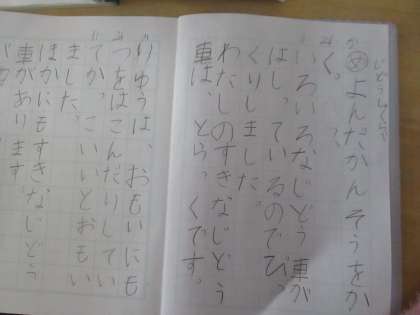 じどうしゃくらべ
め よんだかんそうをか
く。
いろいろなじどう車が
はしっているのでびっ
くりしました。
わたしのすきなじどう
車は、とらっくです。
りゆうは、おもいにも
つをはこんだりしてい
てかっこいいとおもい
ました。
ほかにもすきなじどう
車があります。